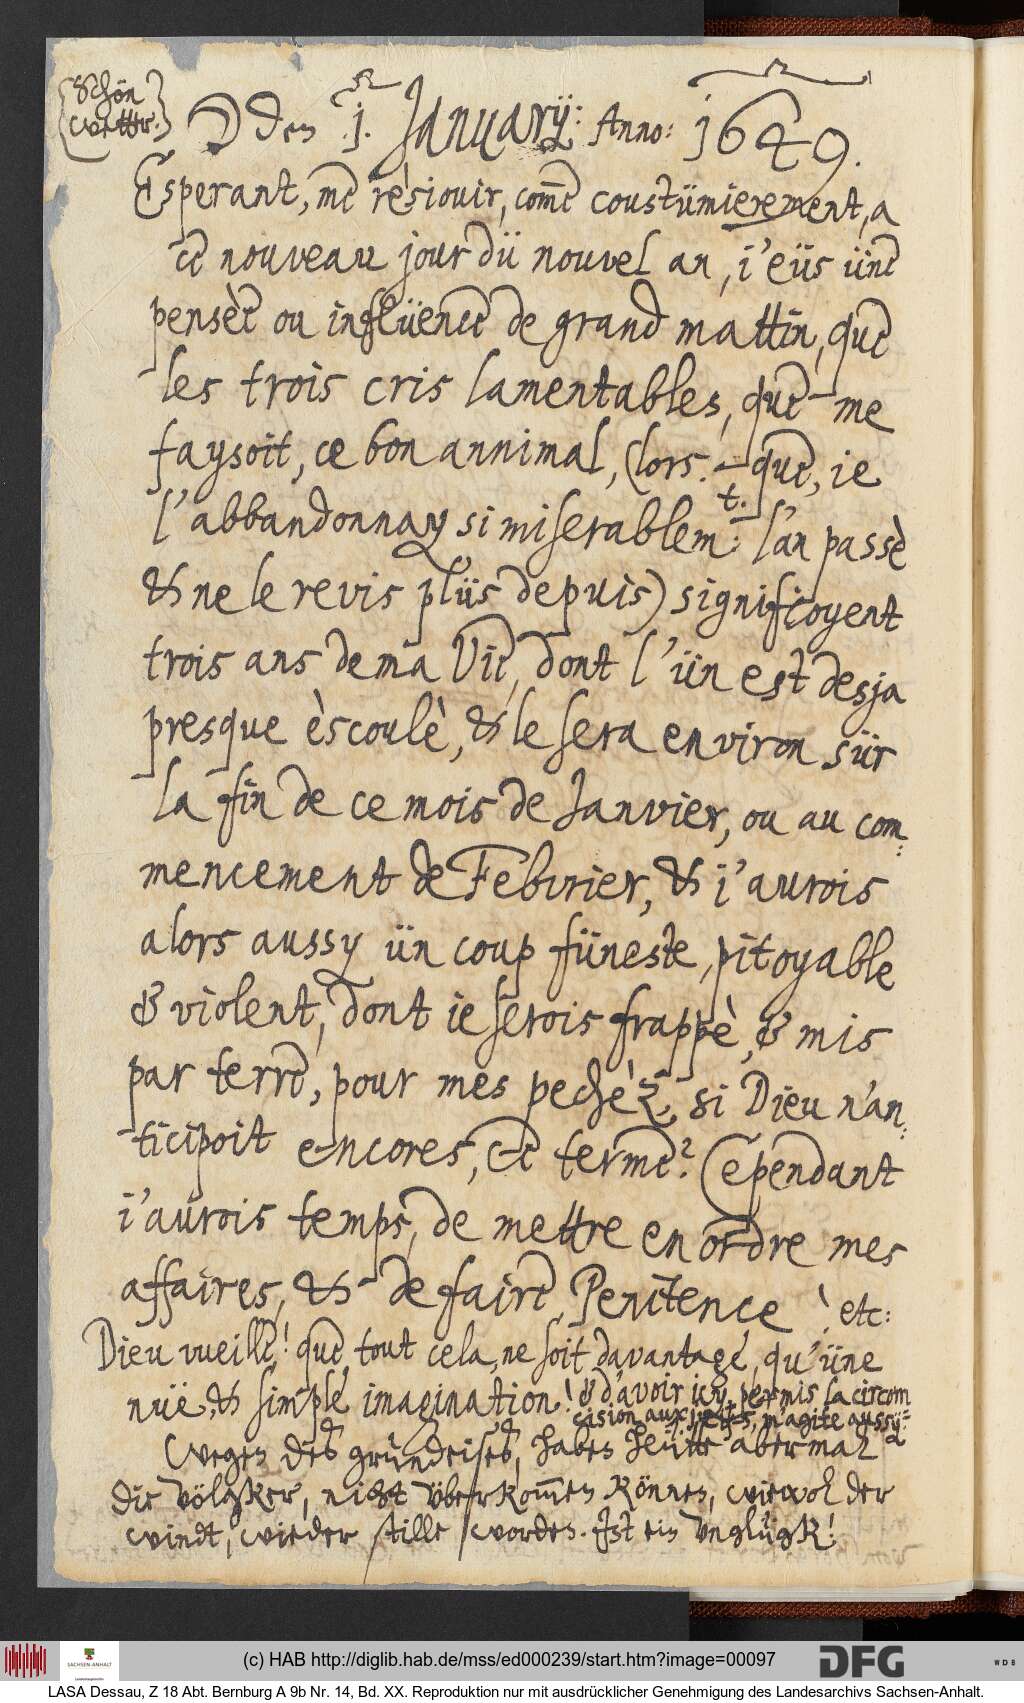 Schön
wetter.
☽ den 1. January: Anno: 1649.
Esperant, me résiouir, com̃e coustümierement, a
ce nouveau jour dü nouvel an, i'eüs üne
pensèe ou inflüence de grand mattin, que
les trois cris lamentables, que me
faysoit, ce bon annimal, (lors que, ie
l'abbandonnay si miserablem:t l'an passè
& ne le revis plüs depuis) significoyent
trois ans de ma Vie, dont l'ün est desja
presque èscoulè, & le sera environ sür
la fin de ce mois de Janvier, ou au com:
mencement de Febvrier, & i'aurois
alors aussy ün coup füneste, pitoyable
& violent, dont ie serois frappè, & mis
par terre, pour mes pechèz, si Dieu n'an:
ticipoit encores, ce terme? Cependant
i'aurois temps, de mettre en ordre mes
affaires, & de faire Penitence, etc:
Dieu vueille! que tout cela, ne soit davantage, qu'üne
nüe, & simple imagination! & d'avoir icy permis la circom
cision aux, m'agite aussy
Wegen des gründeises, haben heütte abermal
die völgker, nicht über kom̃en können, wiewol der
windt, wieder stille worden. Ist ein unglügk!
(c) HAB http://diglib.hab.de/mss/ed000239/start.htm?image=00097
SACHSEN-ANHALT
DFG
WDB
LASA Dessau, Z 18 Abt. Bernburg A 9b Nr. 14, Bd. XX. Reproduktion nur mit ausdrücklicher Genehmigung des Landesarchivs Sachsen-Anhalt.